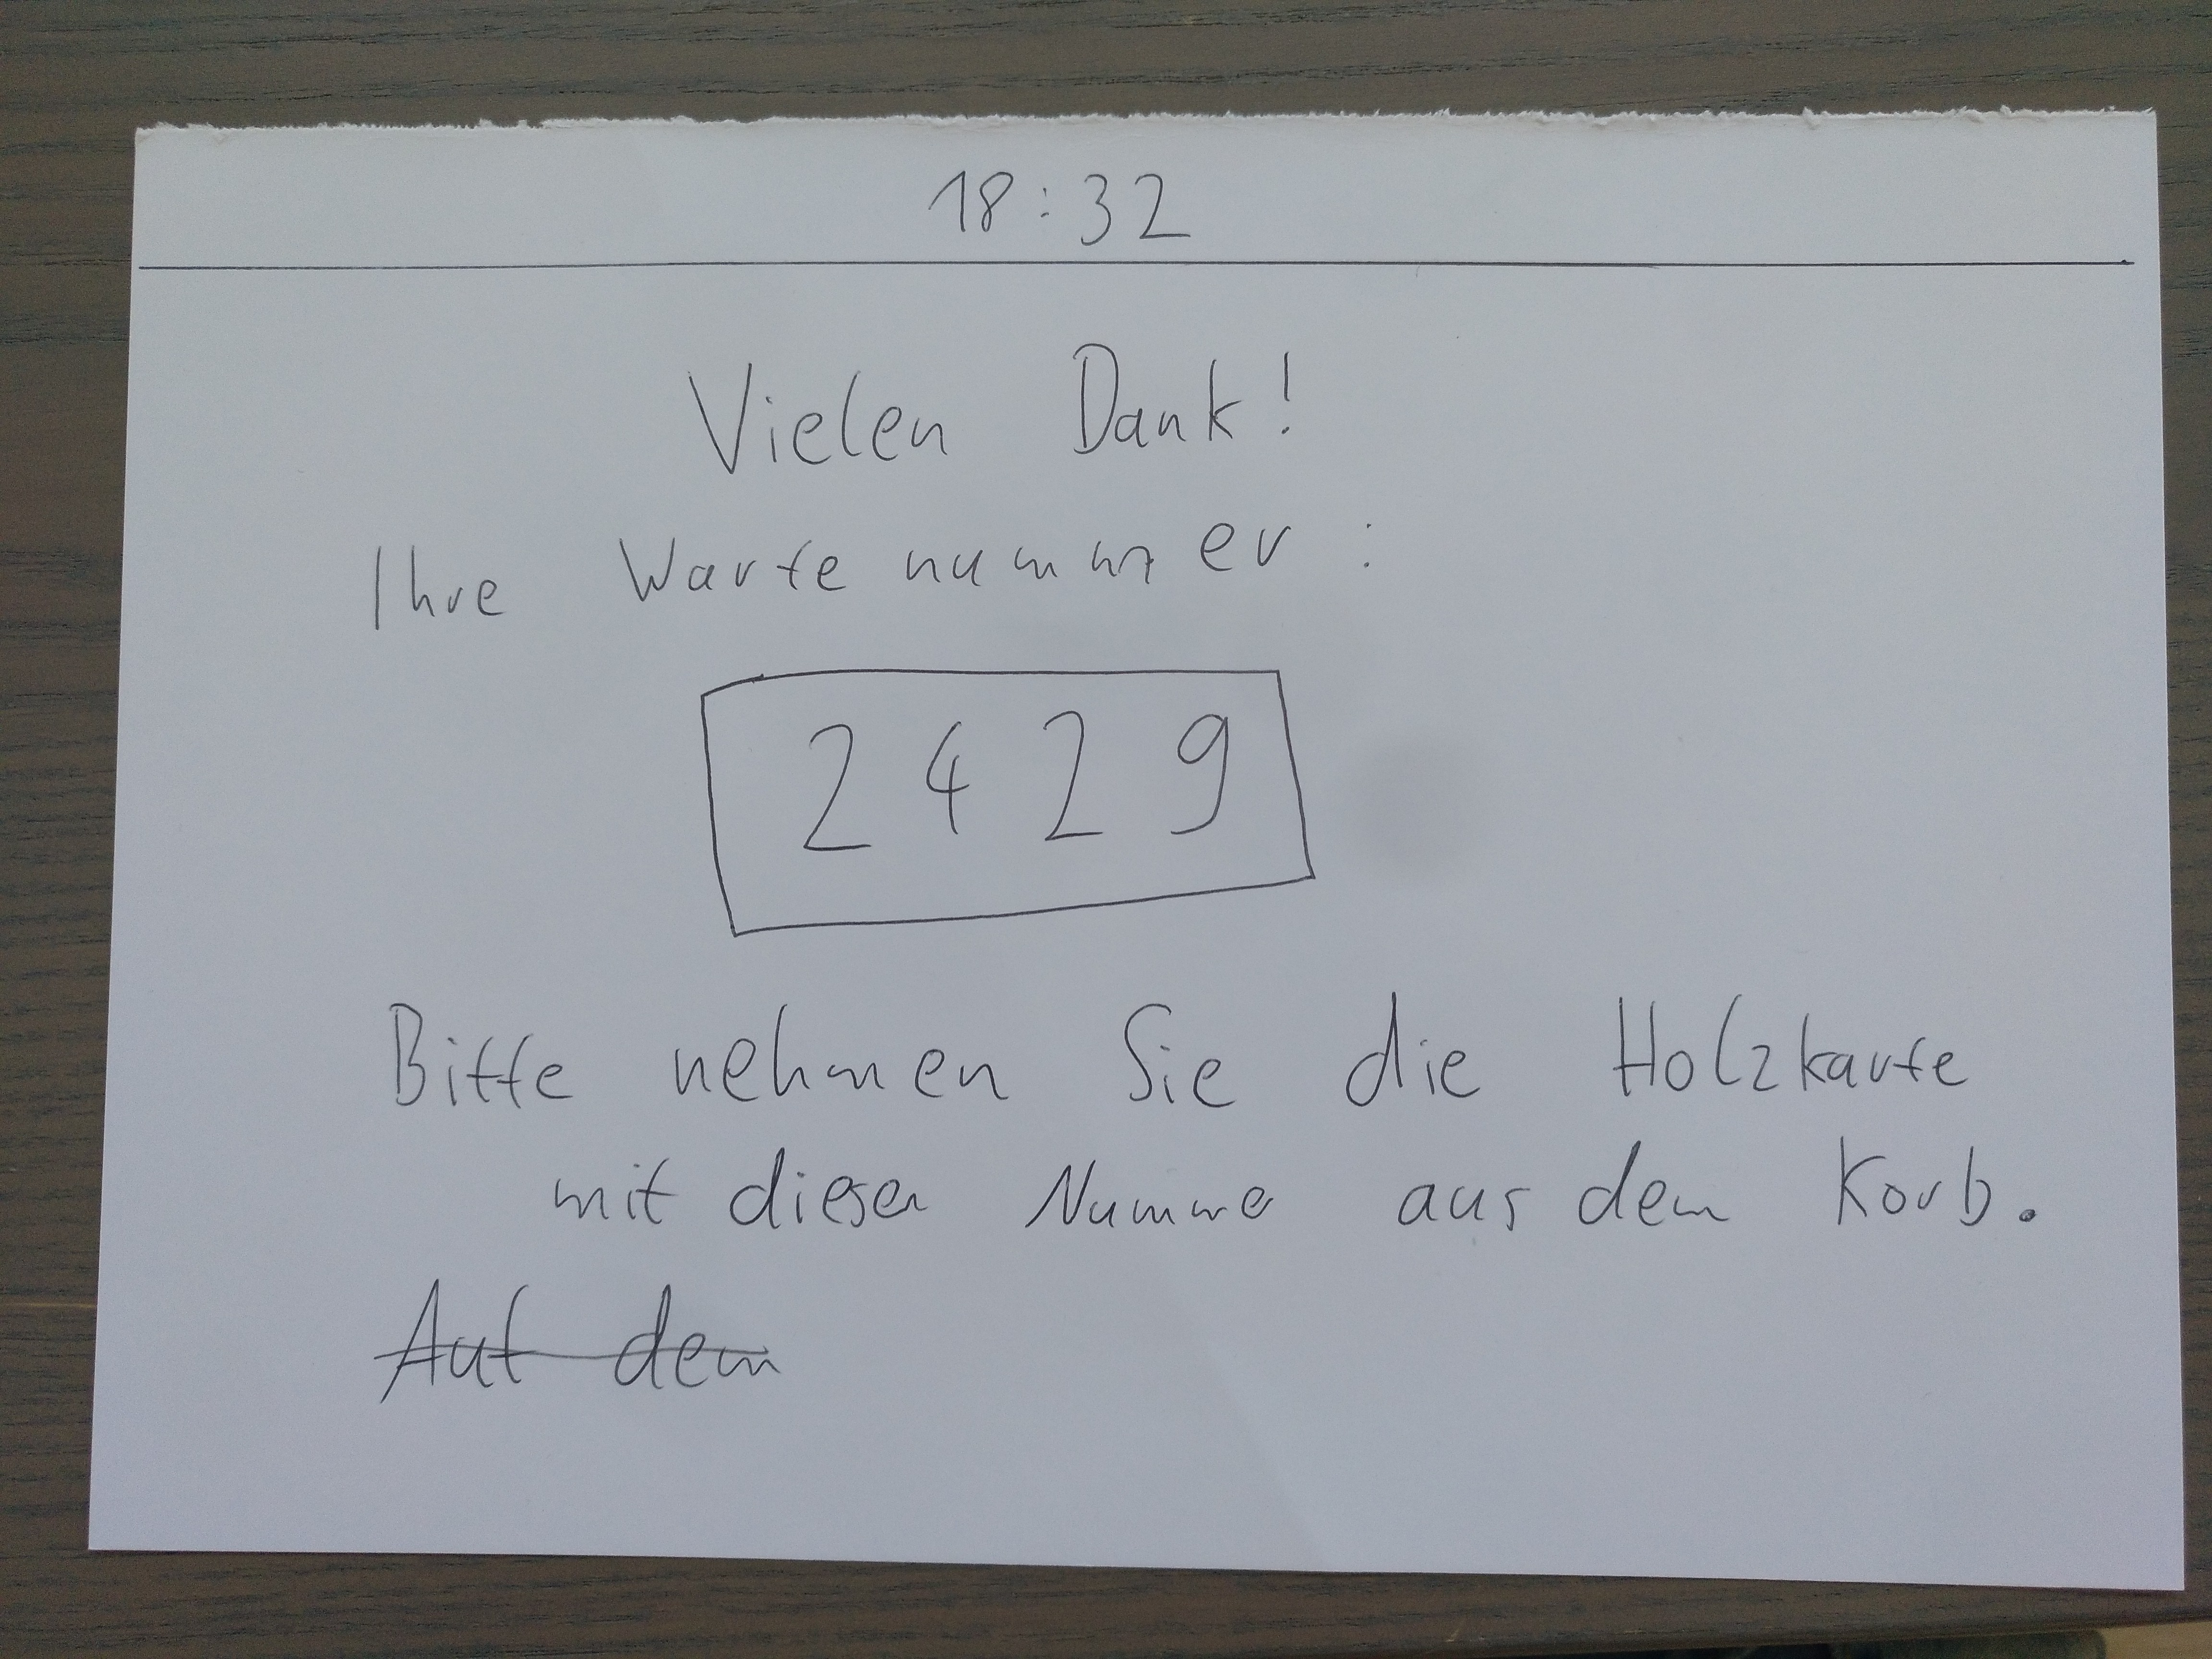 18:32
Vielen Dank!
Ihre Wartenummer:
2429
Bitte nehmen Sie die Holzkarte
mit dieser Nummer aus dem Korb.
Auf dem